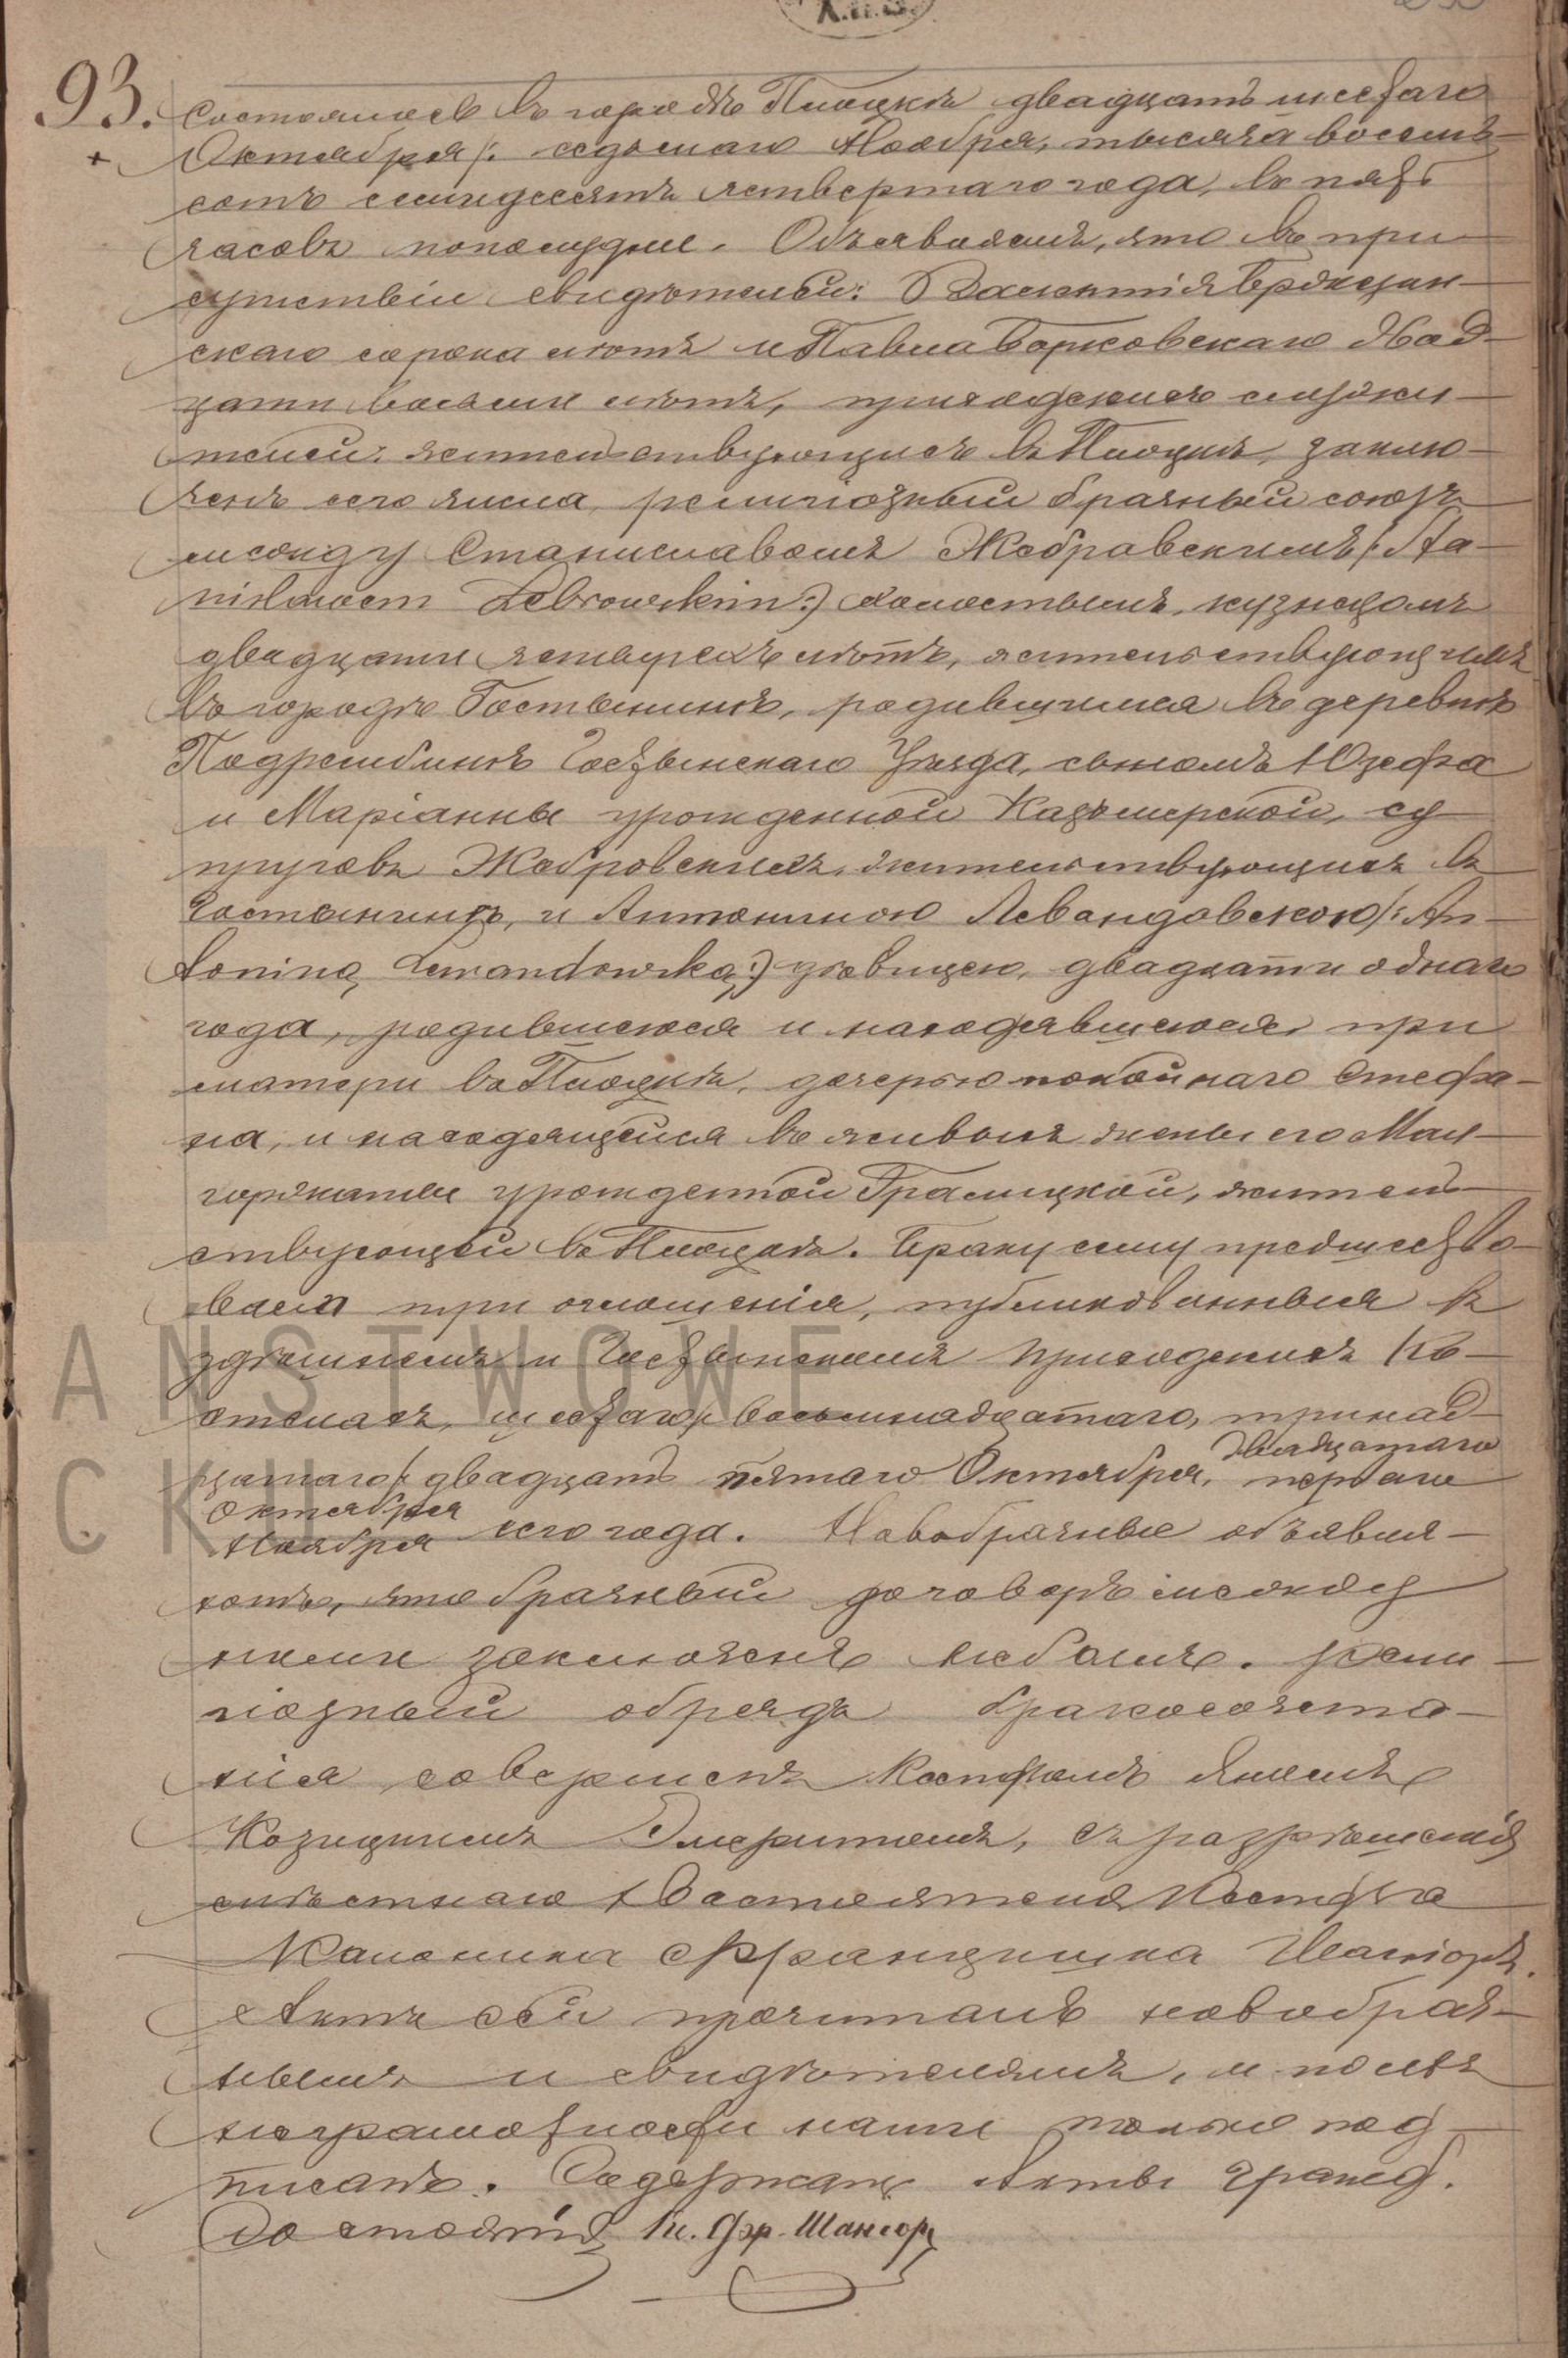 93. Состоялось въ городѣ Плоцкѣ двадцать шестаго
+ Октября /: седьмаго Ноября, тысяча восемь-
сотъ семидесятъ четвертаго года, въ пять
часовъ пополудни. Объявляемъ, что въ при-
сутствіи свидѣтелей:
скаго сорока лѣтъ и Павла Борковскаго двад-
цати восьми лѣтъ, приходскихъ служи-
телей, жительствующихъ въ Плоцкѣ, заклю-
ченъ сего числа религіозный брачный союзъ
между Станиславомъ Жебровскимъ /: Sta-
nisławem Żebrowskim :) холостымъ, кузнецомъ
двадцати четырехъ лѣтъ, жительствующимъ
въ городѣ Гостынинѣ, родившимся въ деревнѣ
Гостынскаго Уѣзда, сыномъ Юзефа
и Маріанны урожденной Казьмерской, су-
пруговъ Жебровскихъ, жительствующихъ въ
Гостынинѣ, и Антониною Левандовскою /: An-
toniną Lewandowską :) дѣвицею, двадцати одного
года, родившеюся и находявшеюся при
матери въ Плоцкѣ, дочерью покойнаго Стефа-
на, и находящейся въ живыхъ жены его Мал-
горжаты урожденной жител-
ствующей въ Плоцкѣ. Браку сему предшество-
вали три оглашенія, публикованныя въ
здѣшнемъ и Гостынскомъ приходскихъ Ко-
стелахъ, шестаго /: восьмнадцатаго, тринад-
цатаго /: двадцать пятаго Октября, двадцатаго
Октября перваго
Ноября сего года. Новобрачные объявля-
ютъ, что брачный договоръ между
ними заключенъ небылъ. Рели-
гіозный обрядъ бракосочета-
нія совершенъ Ксендзомъ Яномъ
Козицкимъ Эмеритомъ, съ разрѣшенія
мѣстнаго Настоятеля Ксендза
Каноника Францишка Шаніора.
Актъ сей прочитанъ новобрач-
нымъ и свидѣтелямъ, и по ихъ
неграмотности нами только под-
писанъ. Содержащ Акты гражд.
Состоянія Кс. Фр. Шаніоръ
A N S T W O W E
C K